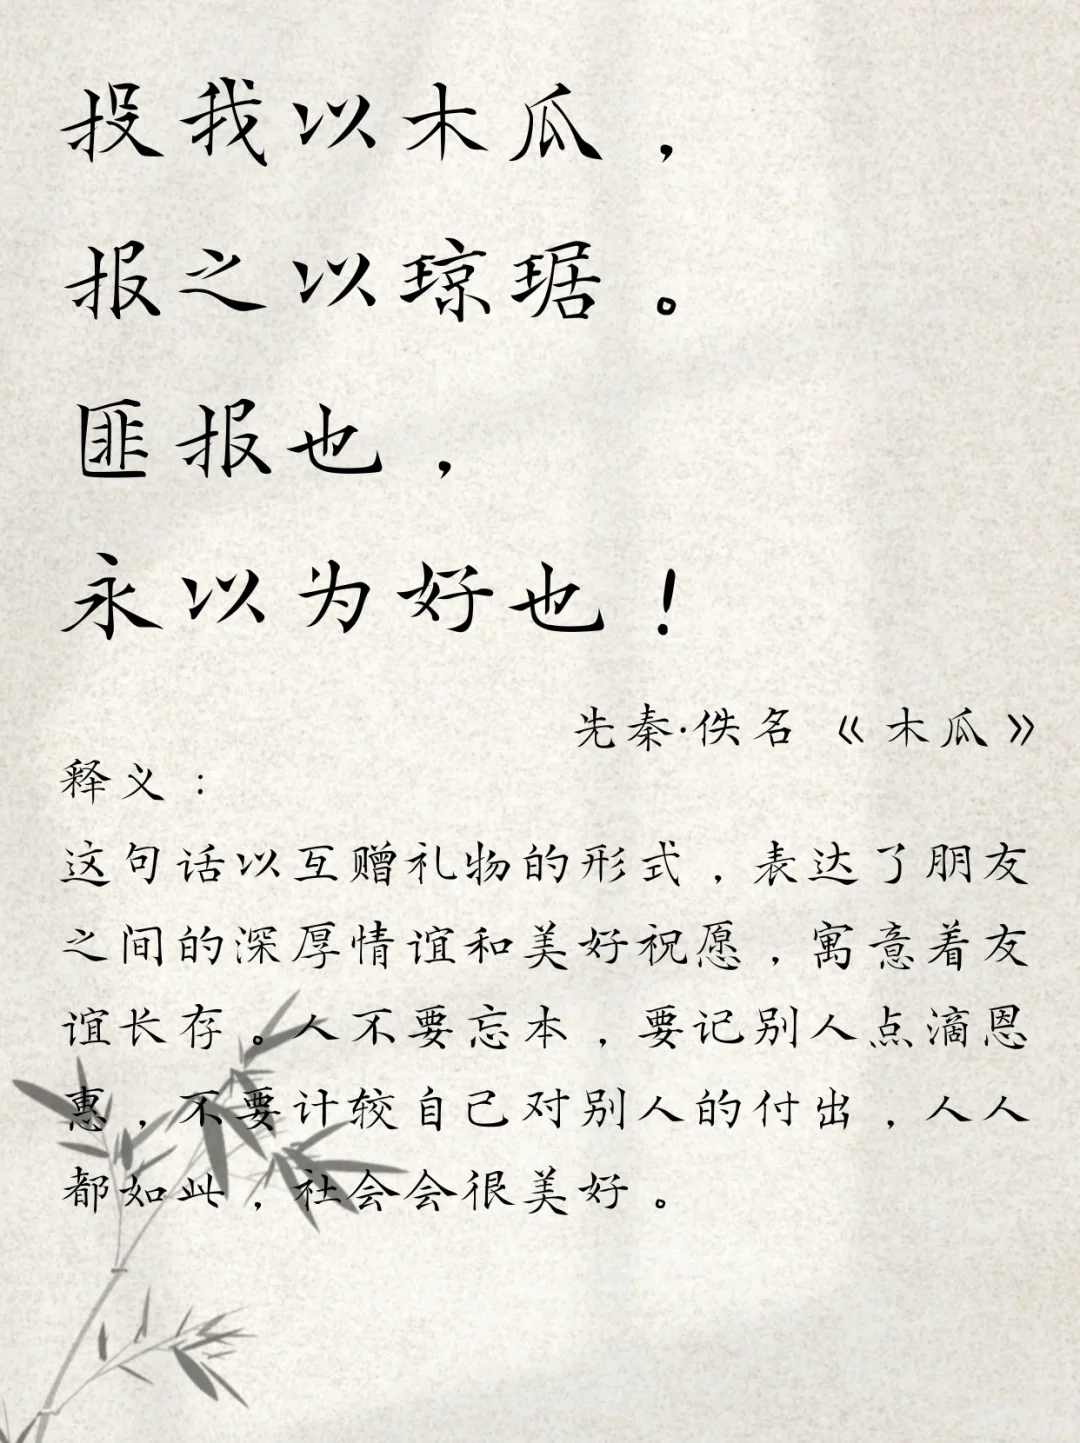 投我以木瓜，
报之以琼琚。
匪报也，
永以为好也！
先秦·佚名《木瓜》
释义：
这句话以互赠礼物的形式，表达了朋友
之间的深厚情谊和美好祝愿，寓意着友
谊长存。人不要忘本，要记别人点滴恩
惠，不要计较自己对别人的付出，人人
都如此，社会会很美好。